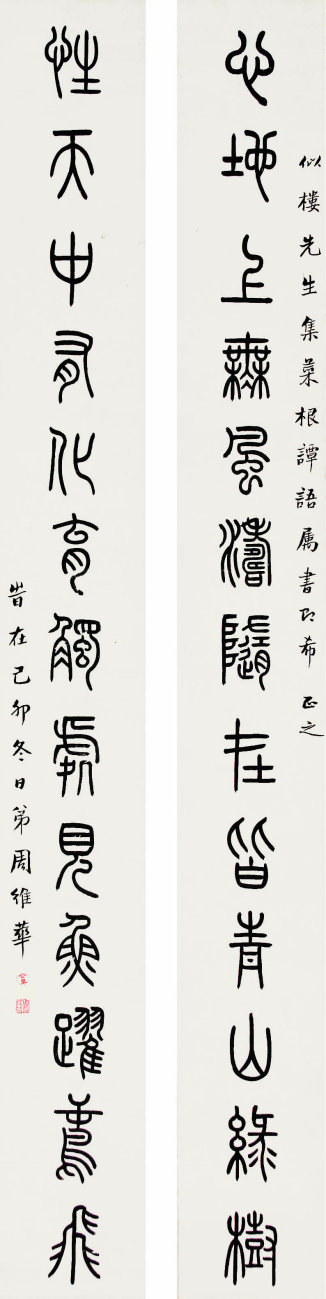 似樓先生集菜根譚語属書即希正之
心地上無風濤隨在皆青山綠樹
性天中有化育觸處見魚躍鳶飛
時在己卯冬日弟周維華